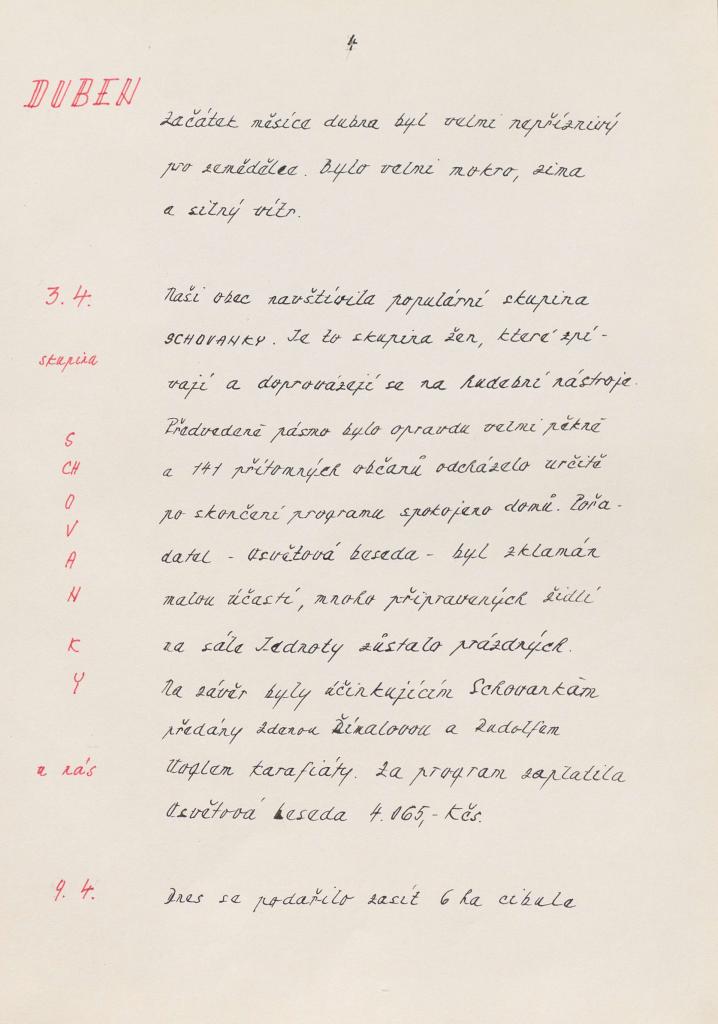 4
DUBEN
Začátek měsíce dubna byl velmi nepříznivý
pro zemědělce. Bylo velmi mokro, zima
a silný vítr.
3.4.
Naši obec navštívila populární skupina
SCHOVANKY. Je to skupina žen, které zpí-
skupina
vají a doprovázejí se na hudební nástroje.
Předvedené pásmo bylo opravdu velmi pěkné
S
CH
a 141 přítomných občanů odcházelo určitě
O
po skončení programu spokojeno domů. Pořa-
V
A
datel - Osvětová beseda - byl zklamán
N
malou účastí, mnoho připravených židlí
K
na sále Jednoty zůstalo prázdných.
Y
Na závěr byly účinkujícím Schovankám
předány Zdenou Žínalovou a Rudolfem
u nás
Voglem karafiáty. Za program zaplatila
Osvětová beseda 4.065,- Kčs.
9.4.
Dnes se podařilo zasít 6 ha cibule